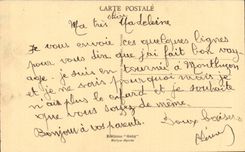 CARTE POSTALE
Ma très chère Madeleine
Je vous envoie ces quelques lignes
pour vous dire que j'ai fait bon voy
age. je suis en tournée à Montluçon
et je ne sais pourquoi mais je
n'ais plus le cafard et je souhaite
que vous soyez de même.
Bonjour à vos parents. Doux baisers